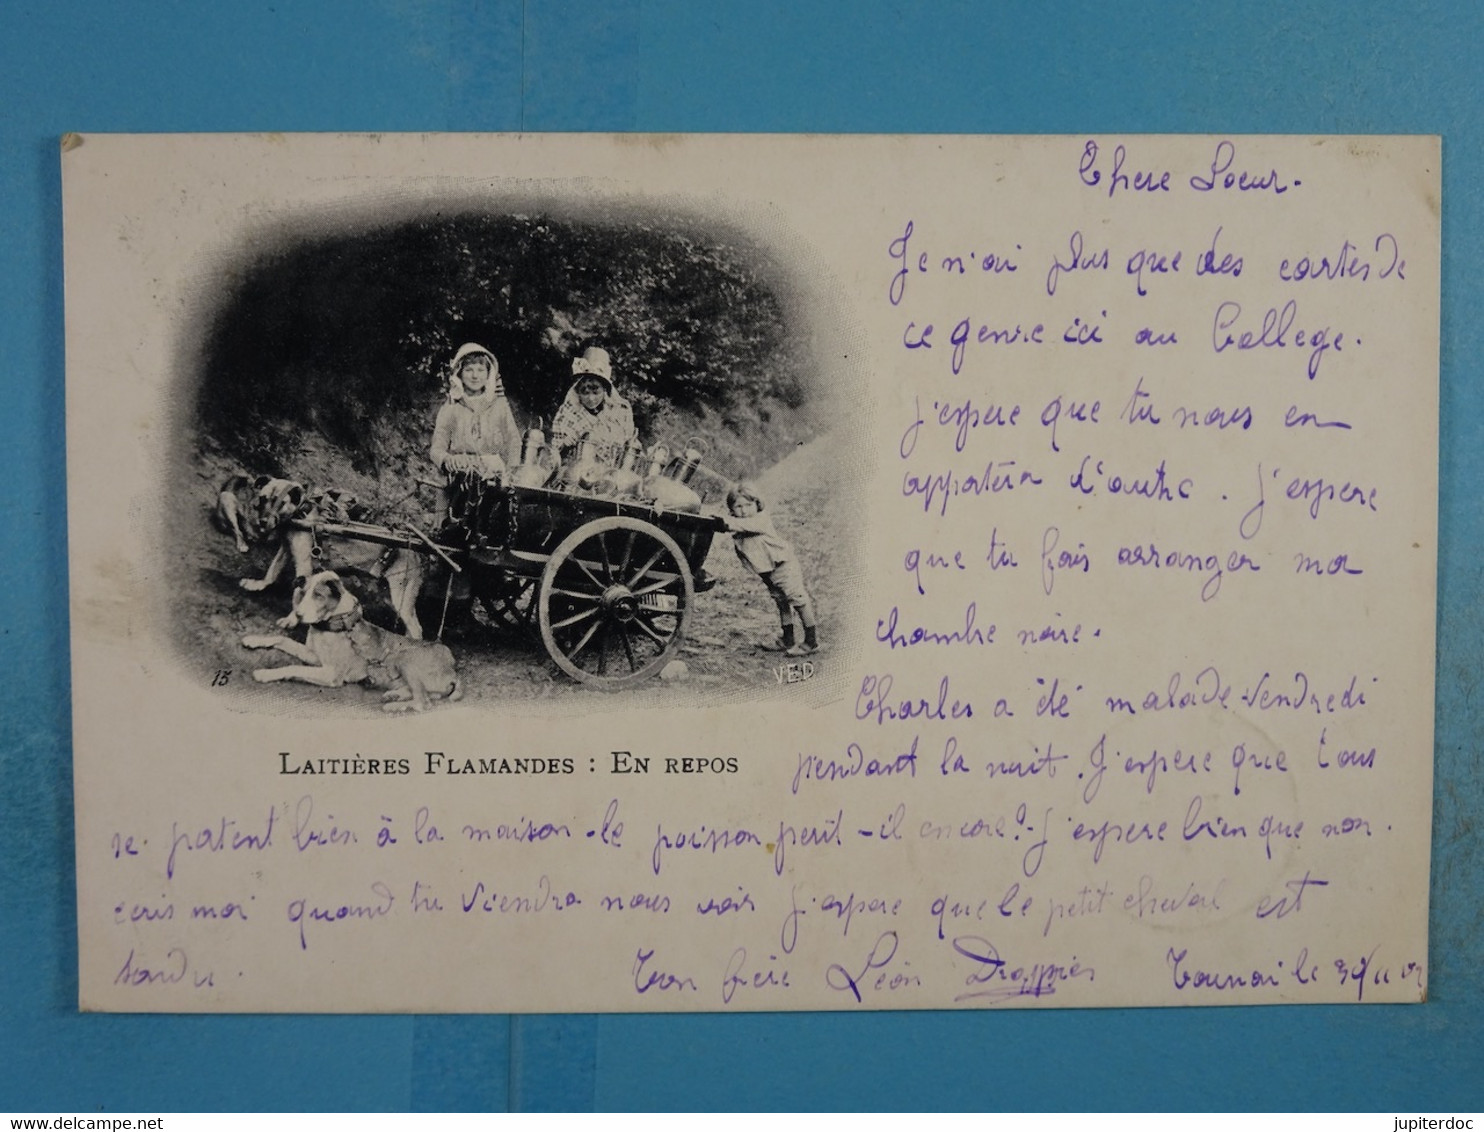 Chere Soeur.
Je n'ai plus que des cartes de
ce genre ici au College.
j'espere que tu nous en
apportera d'autre. J'espere
que tu fais arranger ma
chambre noire.
Charles a été malade vendredi
pendant la nuit. J'espere que tous
se portent bien à la maison. le poisson perit-il encore? J'espere bien que non.
ecris moi quand tu viendra nous voir j'espere que le petit cheval est
tondu.
Ton frère Léon Tournai le 30/11
13
VED
LAITIÈRES FLAMANDES : EN REPOS
www.delcampe.net
jupiterdoc